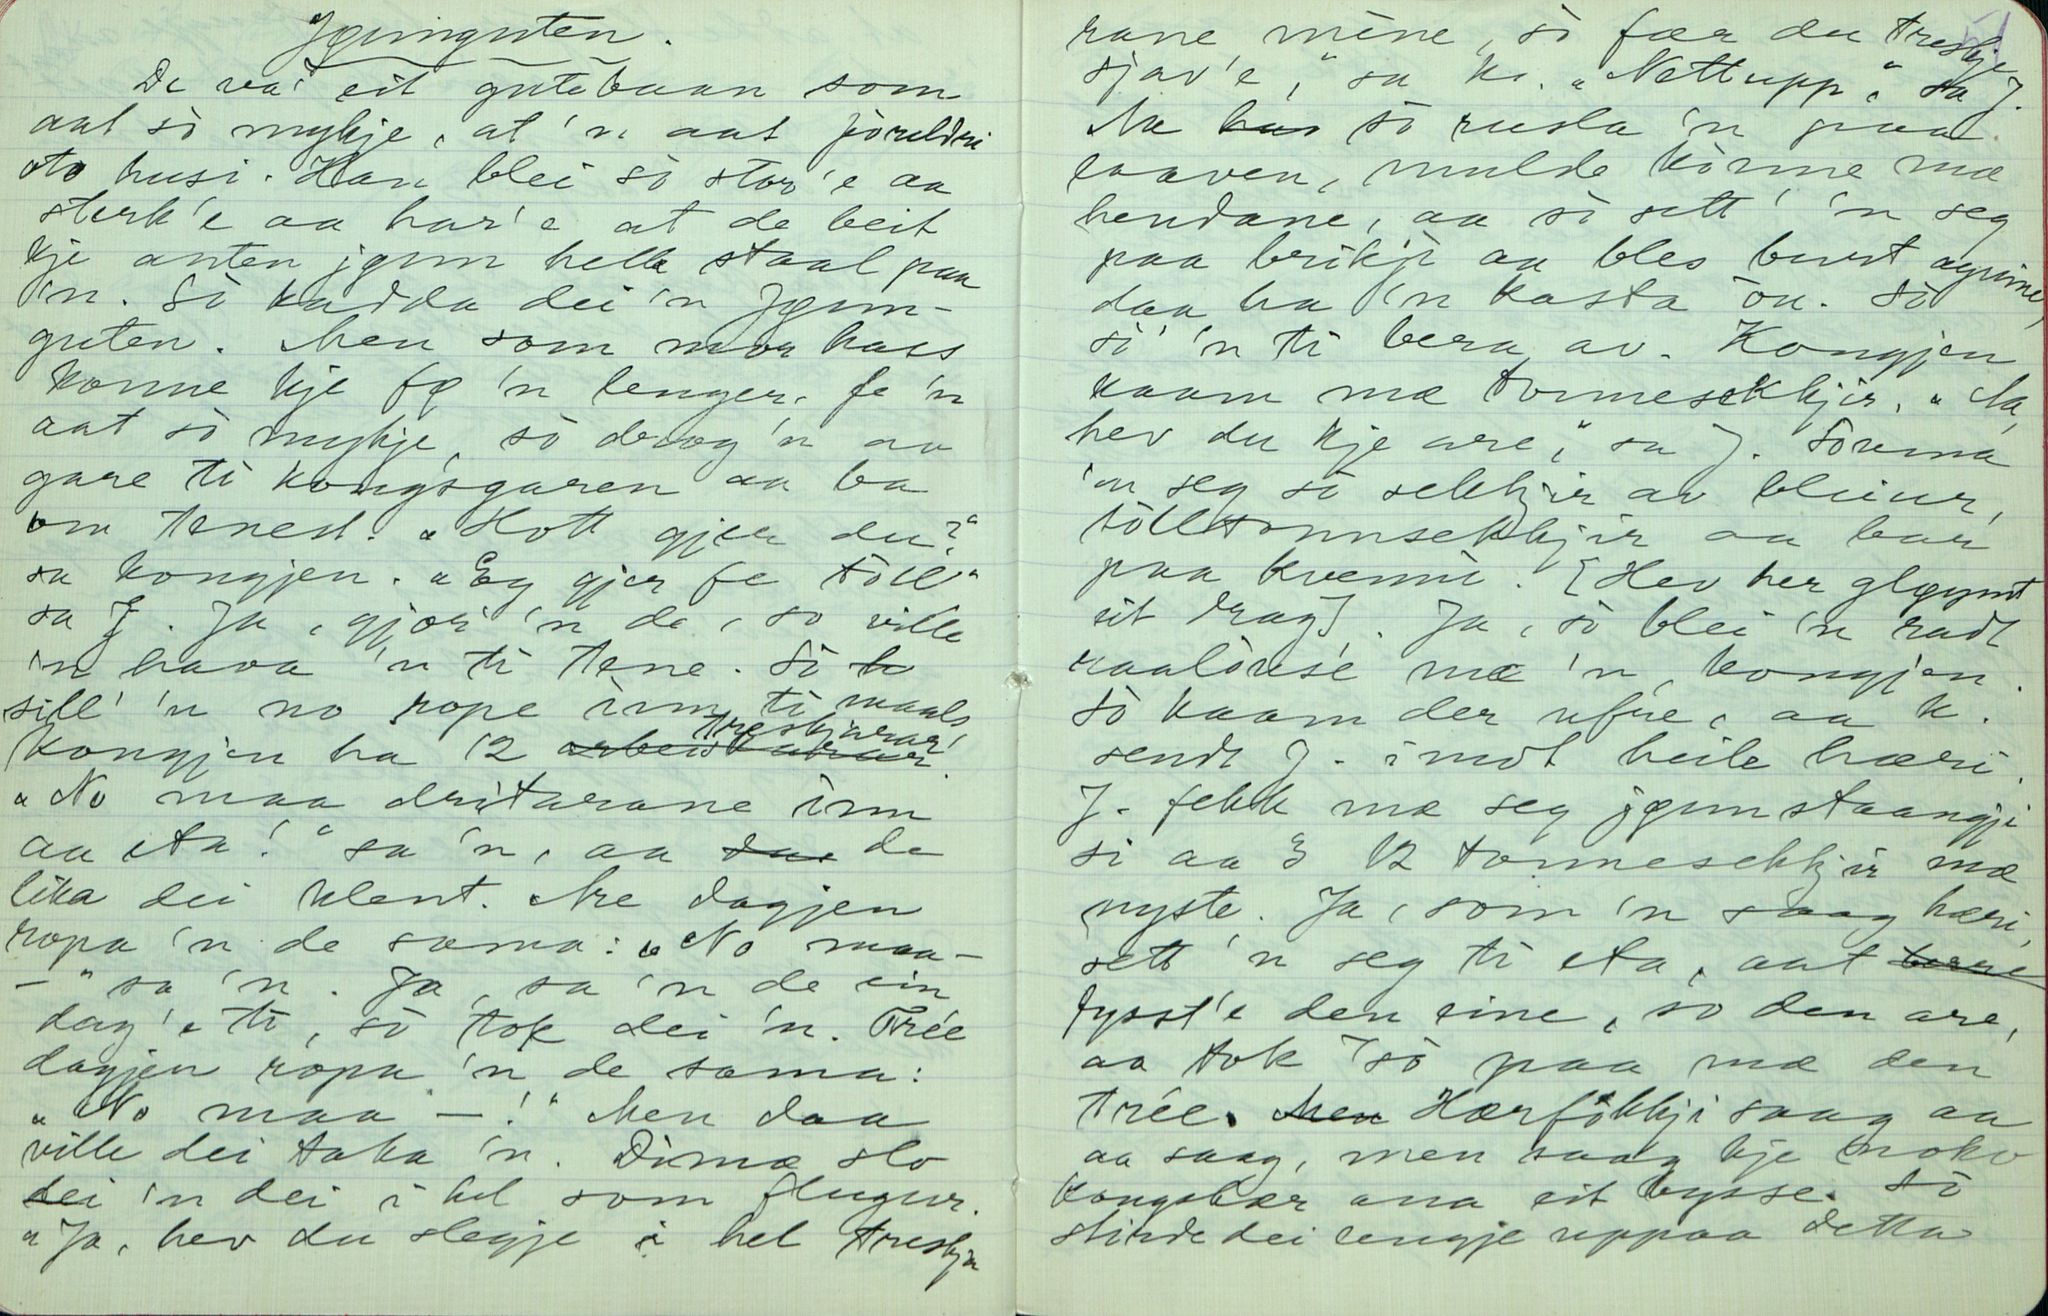 Jgunnguten.
De va' eit gutebaan som
aat sò mykje, at 'n aat foreldri
sto husi. Han blei sò stor'e aa
sterk'e aa har'e at de beit
kje anten jgunn hell staal paa
'n. Sò kadda dei 'n Jgunn-
guten. Men som mor hass
konne kje fø 'n lenger, fe 'n
aat sò mykje, sò drog 'n aa
gare ti kongsgaren aa ba
om tenest. "Hott gjer du?"
sa kongjen. "Eg gjer fe tòll"
sa J. Ja, gjor' 'n de, so ville
'n hava 'n ti tene. Sò
sill' 'n no rope inn ti maals
Kongjen ha 12 arbeiskarar treskjarar.
"No maa dritarane inn
aa eta!" sa 'n, aa de
lika dei klent. Are dagjen
ropa 'n de sama: "No maa-
-" sa 'n. Ja, sa 'n de ein
dag'e ti, sò tok dei 'n. Trée
dagjen ropa 'n de sama:
"No maa -!" Men daa
ville dei taka 'n. Dimæ slo
dei 'n dei i hel som flugur.
"Ja, hev du slegje i hel treskja
rane mine, sò fær du treskje
sjav'e," sa K. "Nettupp," sa J.
Aa sò rusla 'n paa
laaven, mulde kònne mæ
hendane, aa sò sett' 'n seg
paa brikji aa bles burt agnine,
daa ha 'n kasta òn. Sò
si' 'n ti bera av. Kongjen
kaam mæ tonnesekkjir. "Aa,
hev du kje are," sa J. Souma
'n seg sò sekkjir av bleiur,
tòlltonnsekkjir aa bar
paa kvenni. [Hev her gløymt
eit drag]. Ja, sò blei 'n radt
raalòuse mæ 'n, kongjen.
Sò kaam der ufre, aa K.
sendt J. imot heile hæri.
J. fekk mæ seg jgunnstaangji
si aa 3 12 tonnesekkjir mæ
nyste. Ja, som 'n saag hæri,
sett 'n seg ti eta, aat berre
fysst'e den eine, so den are,
aa tok sò paa mæ den
trée. Men Hærfòkkji saag aa
aa saag, men saag kje noko
kongshær ana eit bysse. Sò
stirde dei lengje uppaa detta